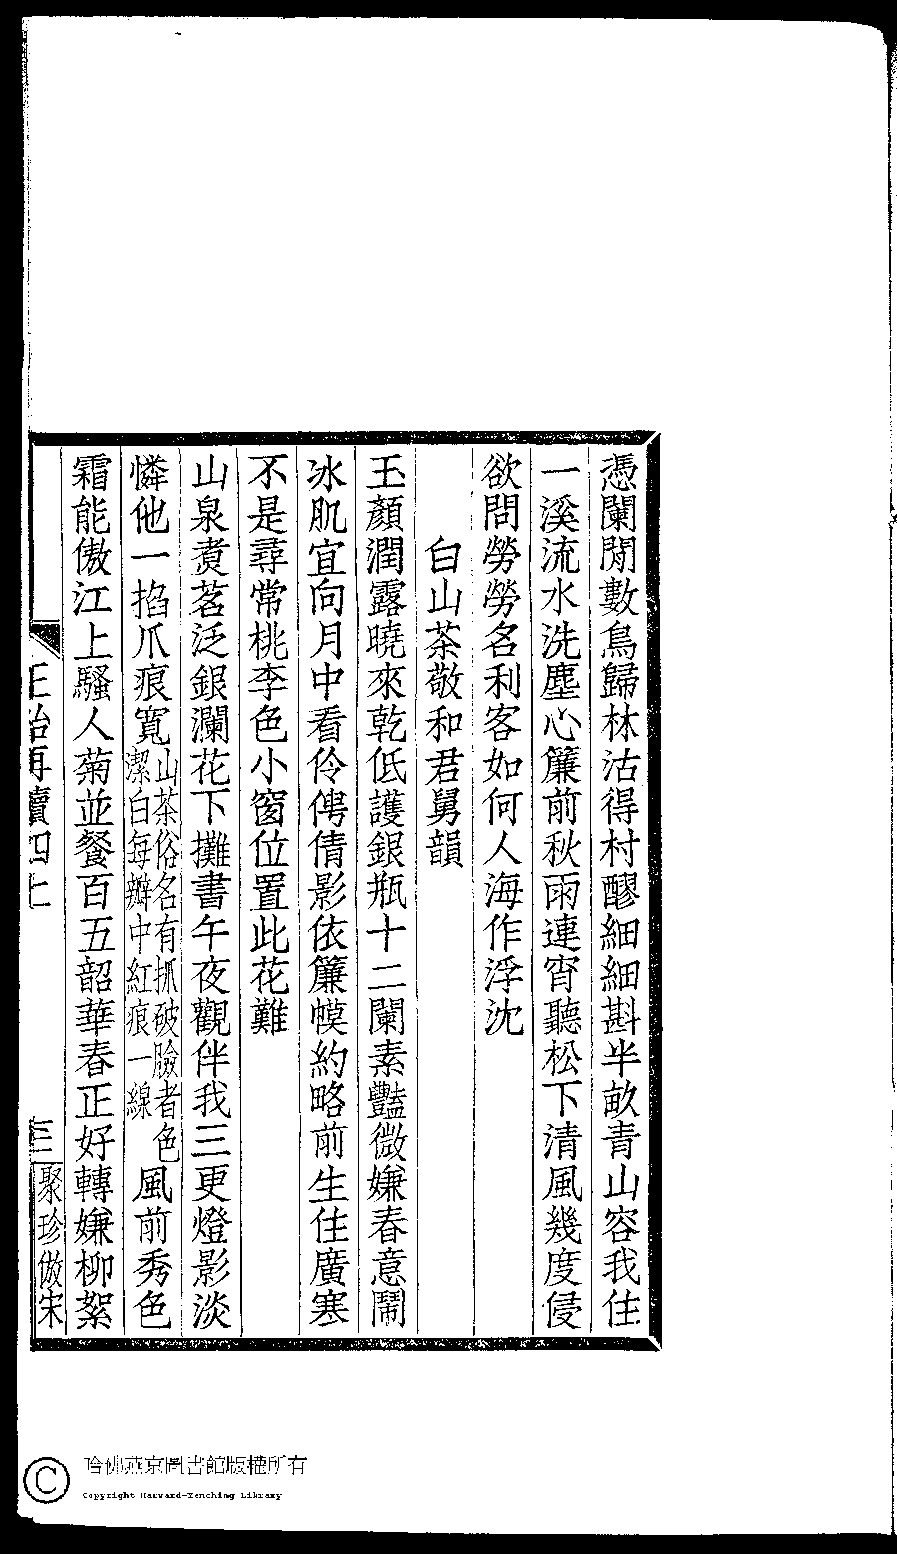 憑闌閒數鳥歸林沽得村醪細細斟半畝青山容我住
一溪流水洗塵心簾前秋雨連宵聽松下清風幾度侵
欲問勞勞名利客如何人海作浮沈
白山茶敬和君舅韻
玉顏潤露曉來乾低護銀瓶十二闌素豔微嫌春意鬧
冰肌宜向月中看伶俜倩影依簾幙約略前生住廣寒
不是尋常桃李色小窗位置此花難
山泉煑茗泛銀瀾花下攤書午夜觀伴我三更燈影淡
憐他一掐爪痕寬山茶俗名有抓破臉者色潔白每瓣中紅痕一線風前秀色
霜能傲江上騷人菊並餐百五韶華春正好轉嫌柳絮
再續四上
聚珍倣宋
哈佛燕京圖書館版權所有
Copyright Harvard-Yenching Library